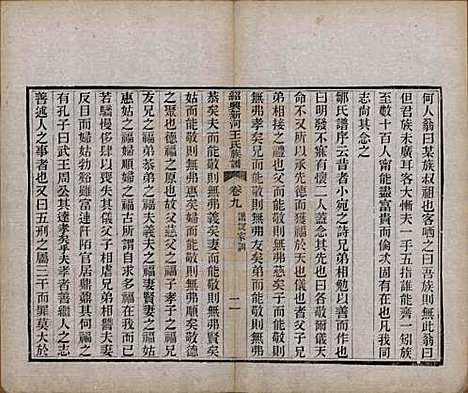 何人翁曰某族叔祖也客哂之曰吾族則無此翁曰
君但族未廣耳客大慚夫一手五指誰能齊一矧族
至數十百人甯能盡富貴而倫式固有在也凡我同
志尚其念之
鄒氏譜序云昔者小宛之詩兄弟相勉以免禍而首
章曰明發不寐有懷二人蓋念其親也曰各敬爾儀天
命不又所以承先德而獲天也儀也者父子兄
弟相接之禮也世未有父而能敬則無弗慈矣子而能敬則
無弗孝矣兄而能敬則無弗友矣弟而能敬則無弗
紹興新河王氏族譜
卷九
譜說家訓
一
恭矣夫而能敬則無弗義矣妻而能敬則無弗賢矣
姑而能敬則無弗惠矣婦而能敬則無弗順矣敬德
之聚也德福之基也慈父子之福孝子父之福
友兄弟之福恭弟兄之福義夫妻之福賢妻夫之福
惠姑婦之福順婦姑之福古所謂自求多福者也
若驕慢形焉其儀忒矣父子相夷兄弟相
反目而婦姑勃谿雖富連阡陌官居鼎鼐其何福之
有孔子曰武王周公其達孝矣乎夫孝者善繼人之志
善述人之事者也又曰五刑之屬三千而罪莫大於